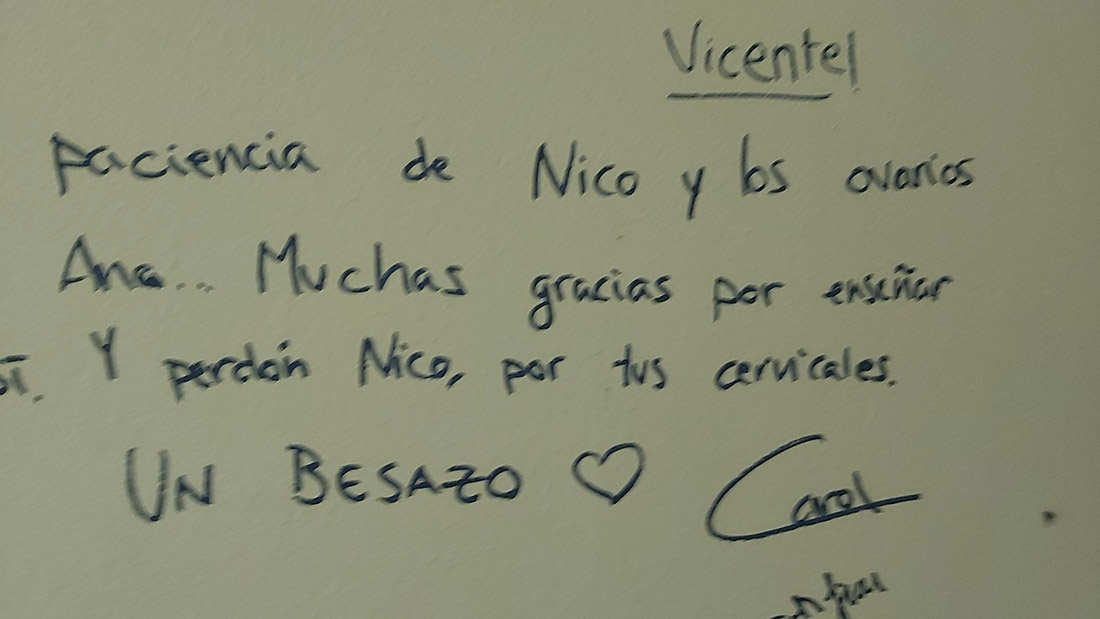 Vicente!
paciencia de Nico y los ovarios
Ana... Muchas gracias por enseñar
sí. Y perdón Nico, por tus cervicales.
UN BESAZO ♡ Carol